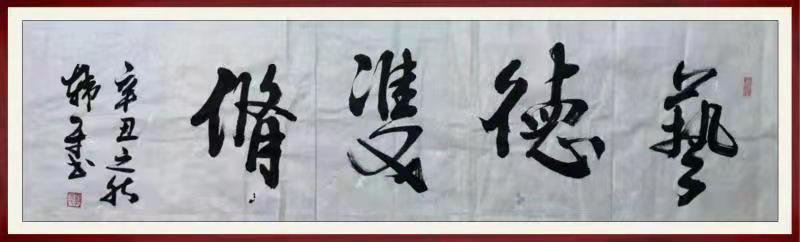 藝德雙脩
辛丑之秋
韩书